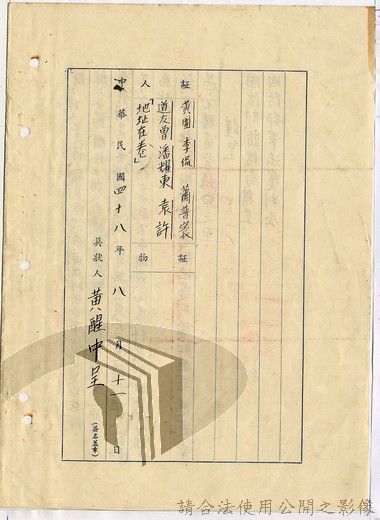 証 黃國 李俊 蕭普寰
人 道友曾 潘耀東 袁許
「地址在卷」
証物
中華民國四十八年八月十一日
具狀人 黃醒中呈 (簽名蓋章)
請合法使用公開之影像